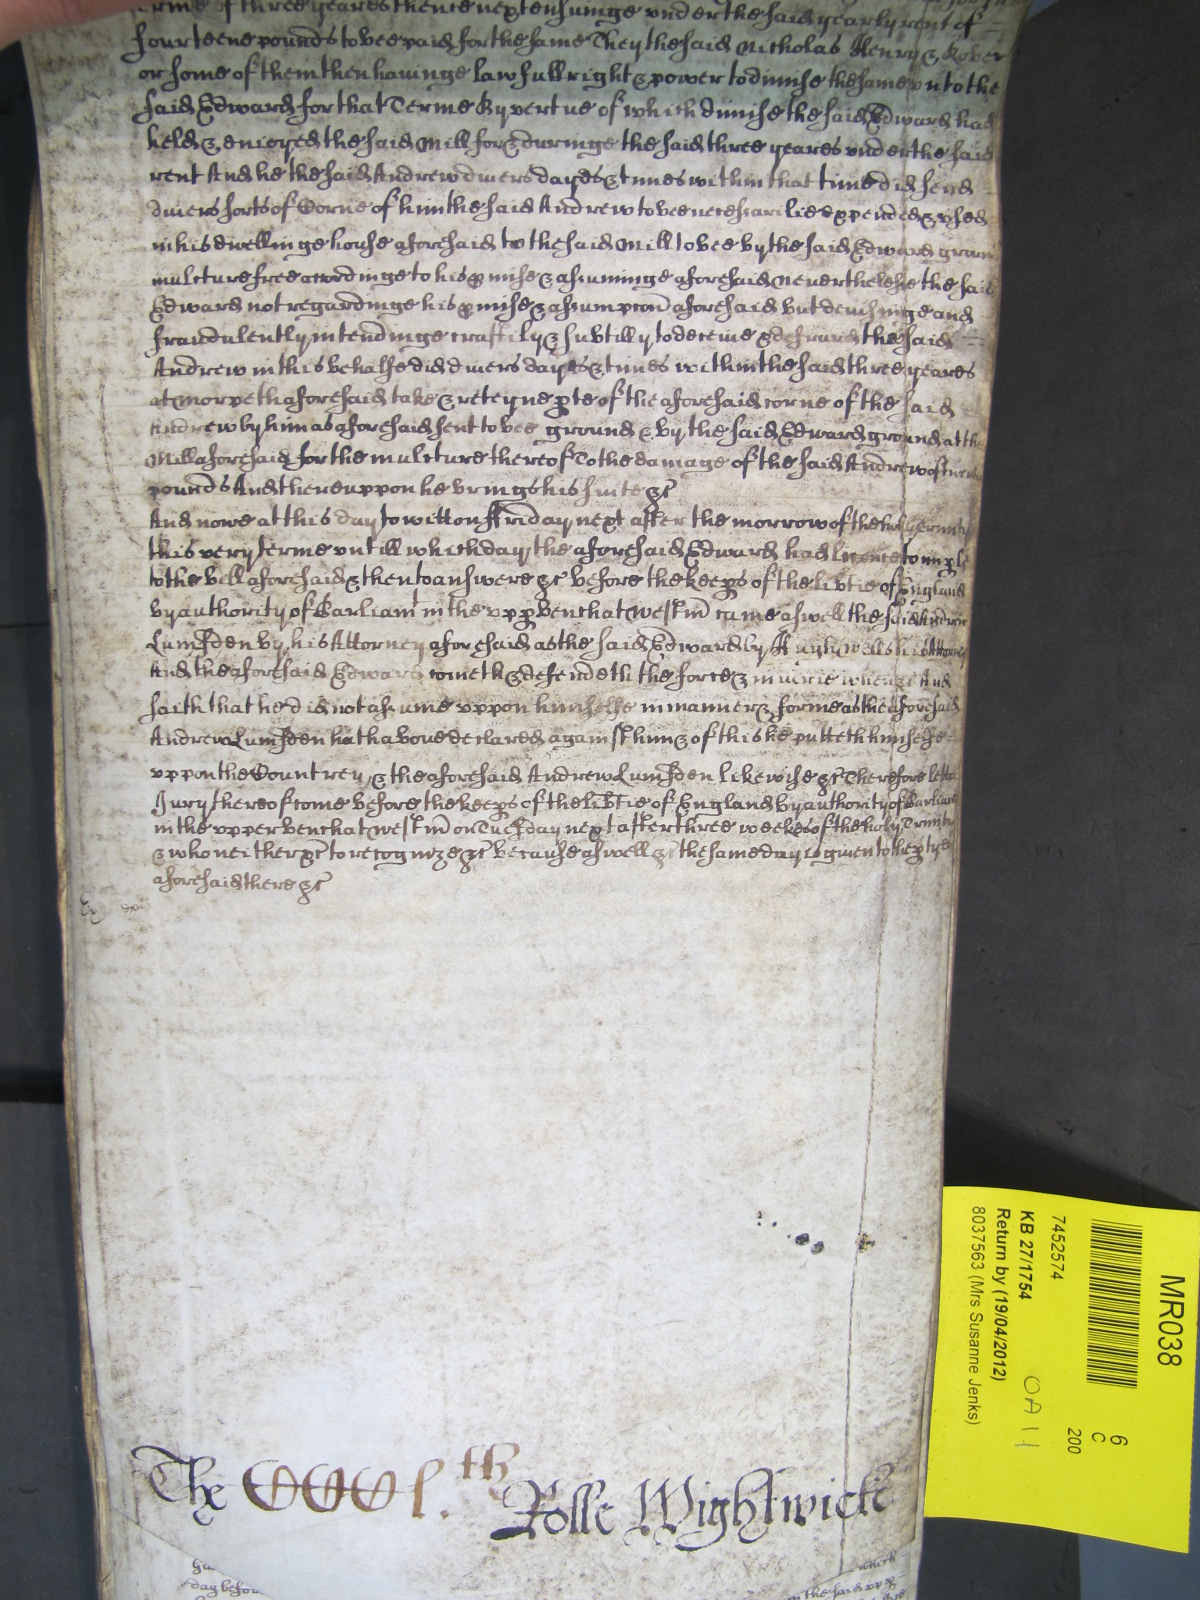 terme of three yeares thence next ensuinge under the said yearly rent of
fourteene pounds to bee paid for the same They the said Nicholas Henry & Rober
or some of them then havinge lawfull right & power to dimise the same unto the
said Edward for that Terme By vertue of which dimise the said Edward had
held & enioyed the said Mill for & duringe the said three yeares under the said
rent And he the said Andrew divers dayes & times within that time did send
divers sorts of Corne of him the said Andrew to bee necessarilie expended & used
in his dwellinge house aforesaid to the said Mill to bee by the said Edward ground
multure free accordinge to his pmise & assuminge aforesaid neverthelesse the said
Edward not regardinge his pmise & assumpcon aforesaid but devisinge and
fraudulently intendinge craftily & subtilly to deceive & defraud the said
Andrew in this behalfe did divers dayes & times within the said three yeares
at Morpeth aforesaid take & reteyne pte of the aforesaid corne of the said
Andrew by him as aforesaid sent to bee ground & by the said Edward ground at the
Mill aforesaid for the multure thereof To the damage of the said Andrew of
pounds And thereuppon he brings his suite &c
And nowe at this day to witt on Friday next after the morrow of the holy Trinity
this very terme untill which day the aforesaid Edward had licence to imple
to the bill aforesaid & then to answere &c before the keeps of the libtie of England
by authority of Parliamt in the upp bench at Westm came aswell the said Andrew
Lumsden by his Attorney aforesaid as the said Edward by Hugh Wells his Attorney
And the aforesaid Edward cometh & defendeth the force & iniurie when &c And
saith that he did not assume uppon himselfe in manner & forme as the aforesaid
Andrew Lumsden hath above declared against him & of this he putteth himselfe
uppon the Countrey & the aforesaid Andrew Lumsden likewise &c Therefore lett a
Jury thereof come before the keeps of the libtie of England by authority of Parliamt
in the upper bench at Westm on Tuesday next after three weekes of the holy Trinity
& who neither &c to recognize &c because aswell &c the same day is given to the ptyes
aforesaid there &c
The CCCl.th Rolle Wightwick
day befor
which
in the said upp
MR038
6
C
200
7452574
KB 27/1754
OA11
Return by (19/04/2012)
8037563 (Mrs Susanne Jenks)